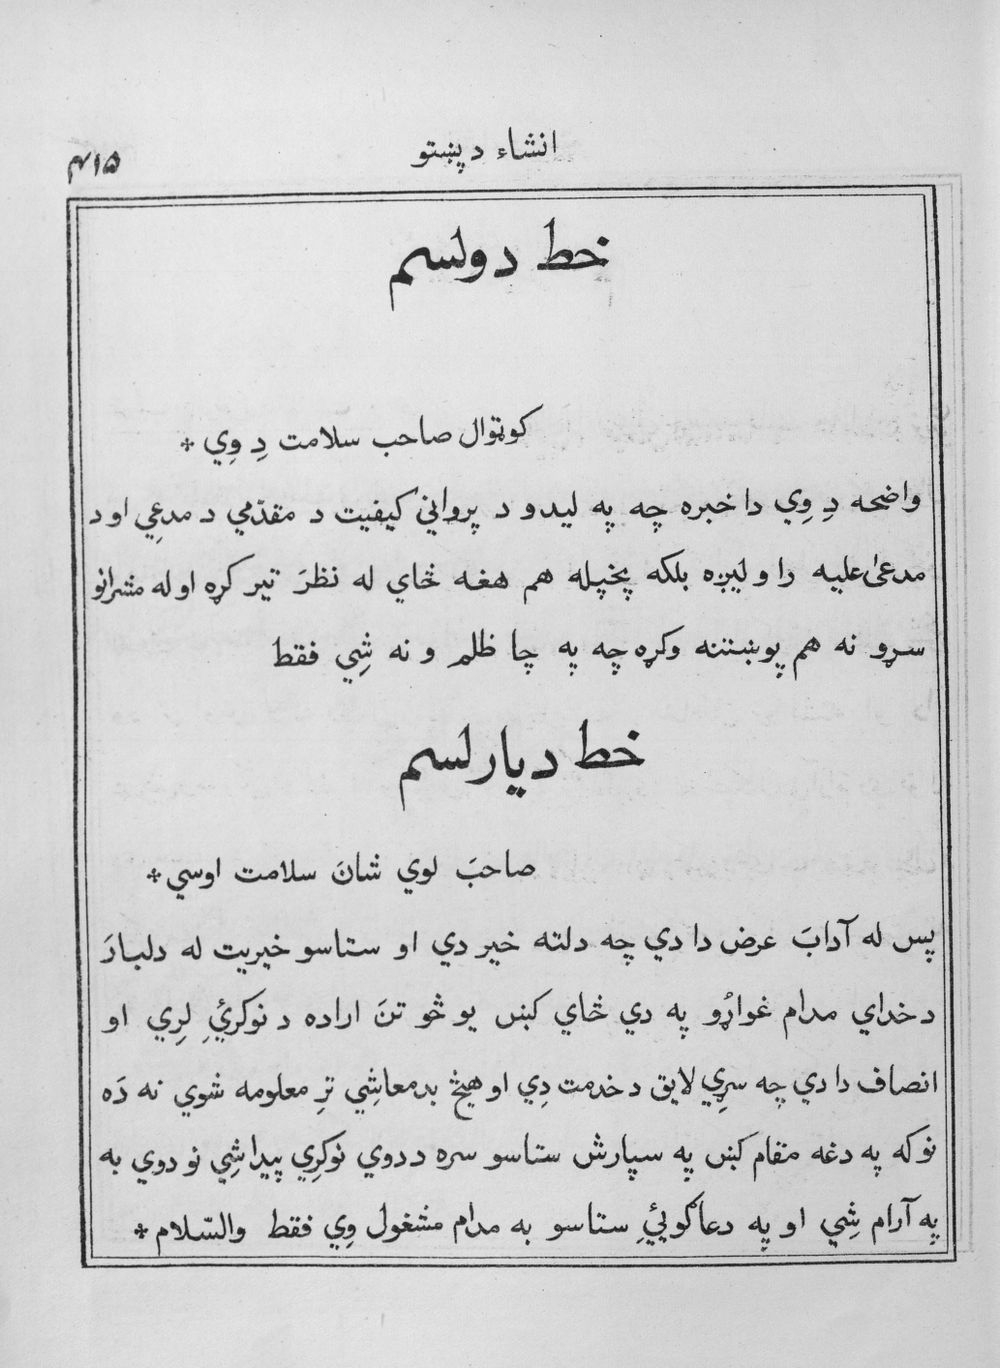 انشاء د پښتو
۴۱۵
خط دولسم
کوټوال صاحب سلامت دِ وِي *
واضحه دِ وِي دا خبره چه په لیدو د پرواني کیفیت د مقدّمي د مدعِي او د
مدعیٰ علیه را ولیږه بلکه پخپله هم هغه ځاي له نظرَ تیر کړه او له مشرانو
سړو نه هم پوښتنه وکړه چه په چا ظلم و نه شِي فقط
خط دیارلسم
صاحبَ لوي شانَ سلامت اوسي *
پس له آدابَ عرض دا دي چه دلته خیر دي او ستاسو خیریت له دلبارَ
د خداي مدام غواړُو په دي ځاي کښ یو څو تنَ اراده د نوکرئِ لرِي او
انصاف دا دي چه سړِي لایق د خدمت دِي او هیڅ بدمعاشِي ترِ معلومه شوي نه دَه
نو که په دغه مقام کښ په سپارش ستاسو سره د دوي نوکرِي پیدا شِي نو دوي به
په آرام شِي او په دعاګویئِ ستاسو به مدام مشغول وِي فقط والسّلام *